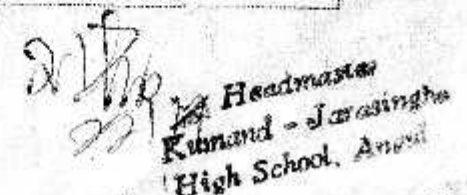 Headmaster
Kumand - Jarasingha
High School, Angul